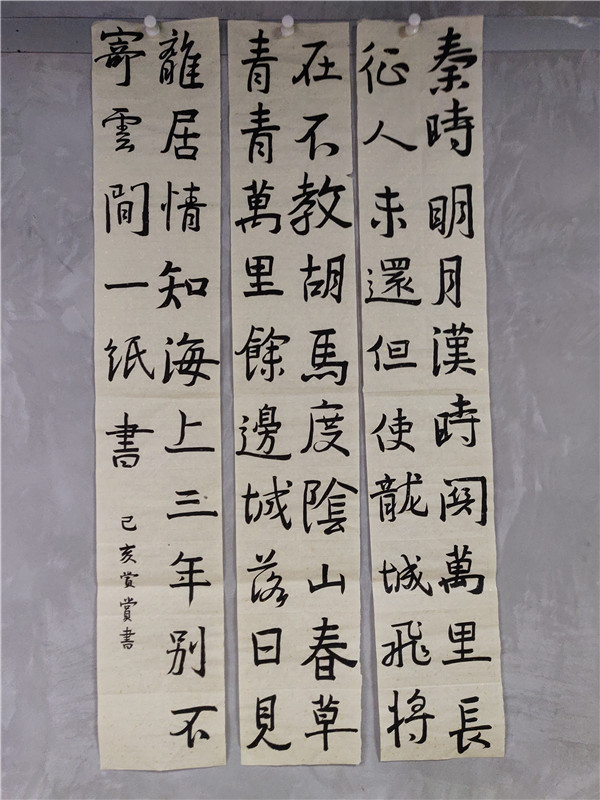 秦時明月漢時関萬里長
征人未還但使龍城飛將
在不教胡馬度陰山春草
青青萬里餘邊城落日見
離居情知海上三年別不
寄雲間一紙書
己亥賞賞書